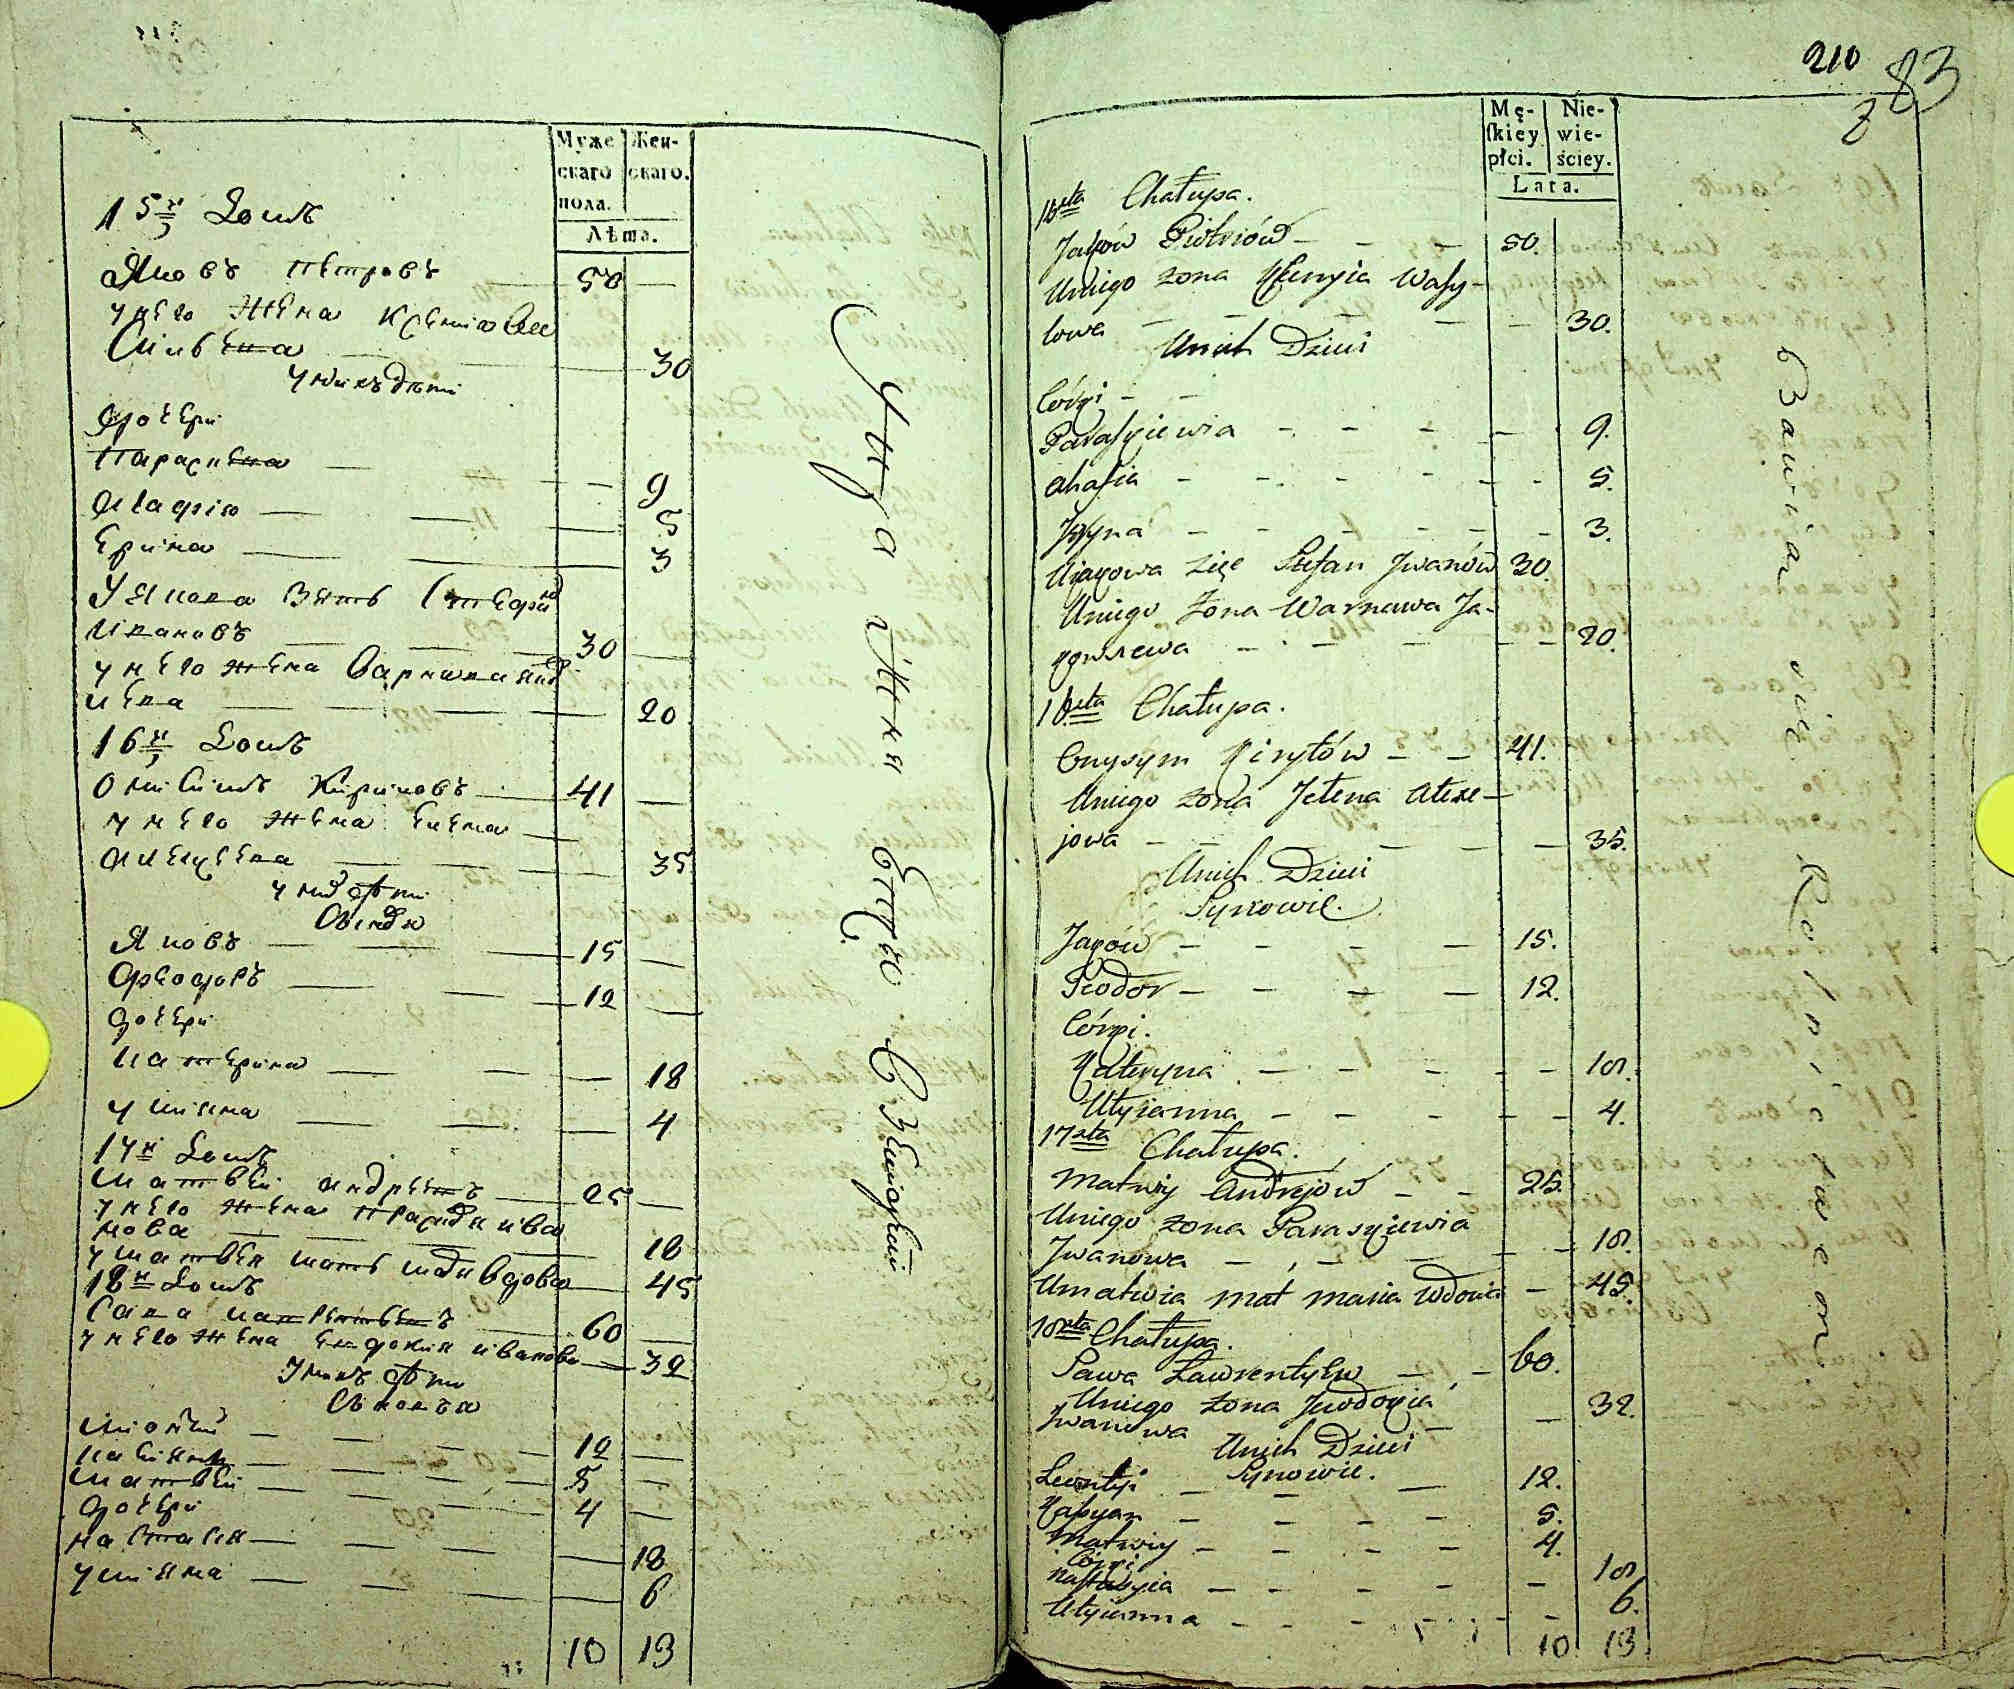 Муже
скаго
пола.
Жен-
скаго.
Лѣта.
15й Домъ
Яковъ петровъ 50
унего жена
30
унихъ дѣти
дочери
Параскева 9
Агафия 5
Ерина 3
Уякова зять Стефан
Ивановъ 30
унего жена Варвара Яко
влева 20
16й Домъ
Онисимъ Кириловъ 41
унего жена Елена
Алексеева 35
уних дѣти
Сыновья
Яковъ 15
Феодоръ 12
дочери
Катерина 18
Улияна 4
17й Домъ
Матвей Андреевъ 25
унего жена Праскевия Ива
нова 18
уматвея мать Мария вдова 45
18й Домъ
Сава Лаврентьевъ 60
унего жена Евдокия иванова 32
Унихъ дѣти
Сыновья
Леонтий 12
Касиян 5
Матвей 4
дочери
Настасия 18
Улияна 6
10 13
210
83
Mę-
ſkiey
płci.
Nie-
wie-
ściey.
Lata.
15sta Chałupa.
Jakow Piotrów 50.
Uniego żona Xenyia Wasy-
lowa 30.
Unich Dzieci
Córki
Paraskiewia 9.
Ahafia 5.
Jryna 3.
Ujakowa zięć Stefan Jwanów 30.
Uniego Żona Warwara Ja-
kowlewa 20.
16sta Chałupa.
Onysym Kiryłów 41.
Uniego żona Jełena Alexe-
jowa 35.
Unich Dzieci
Synowie.
Jakow 15.
Fiodor 12.
Córki.
Kateryna 18.
Ulyianna 4.
17sta Chałupa.
Matwiy Andrejów 25.
Uniego żona Paraskiewia
Jwanowa 18.
Umatwia mat maria Wdowa 45.
18sta Chałupa.
Sawa Ławrentyiew 60.
Uniego żona Jewdokia
Jwanowa 32.
Unich Dzieci
Synowie.
Leontyi 12.
Kasyan 5.
Matwiy 4.
Córki
Nastasyia 18
Ulyianna 6.
10 13